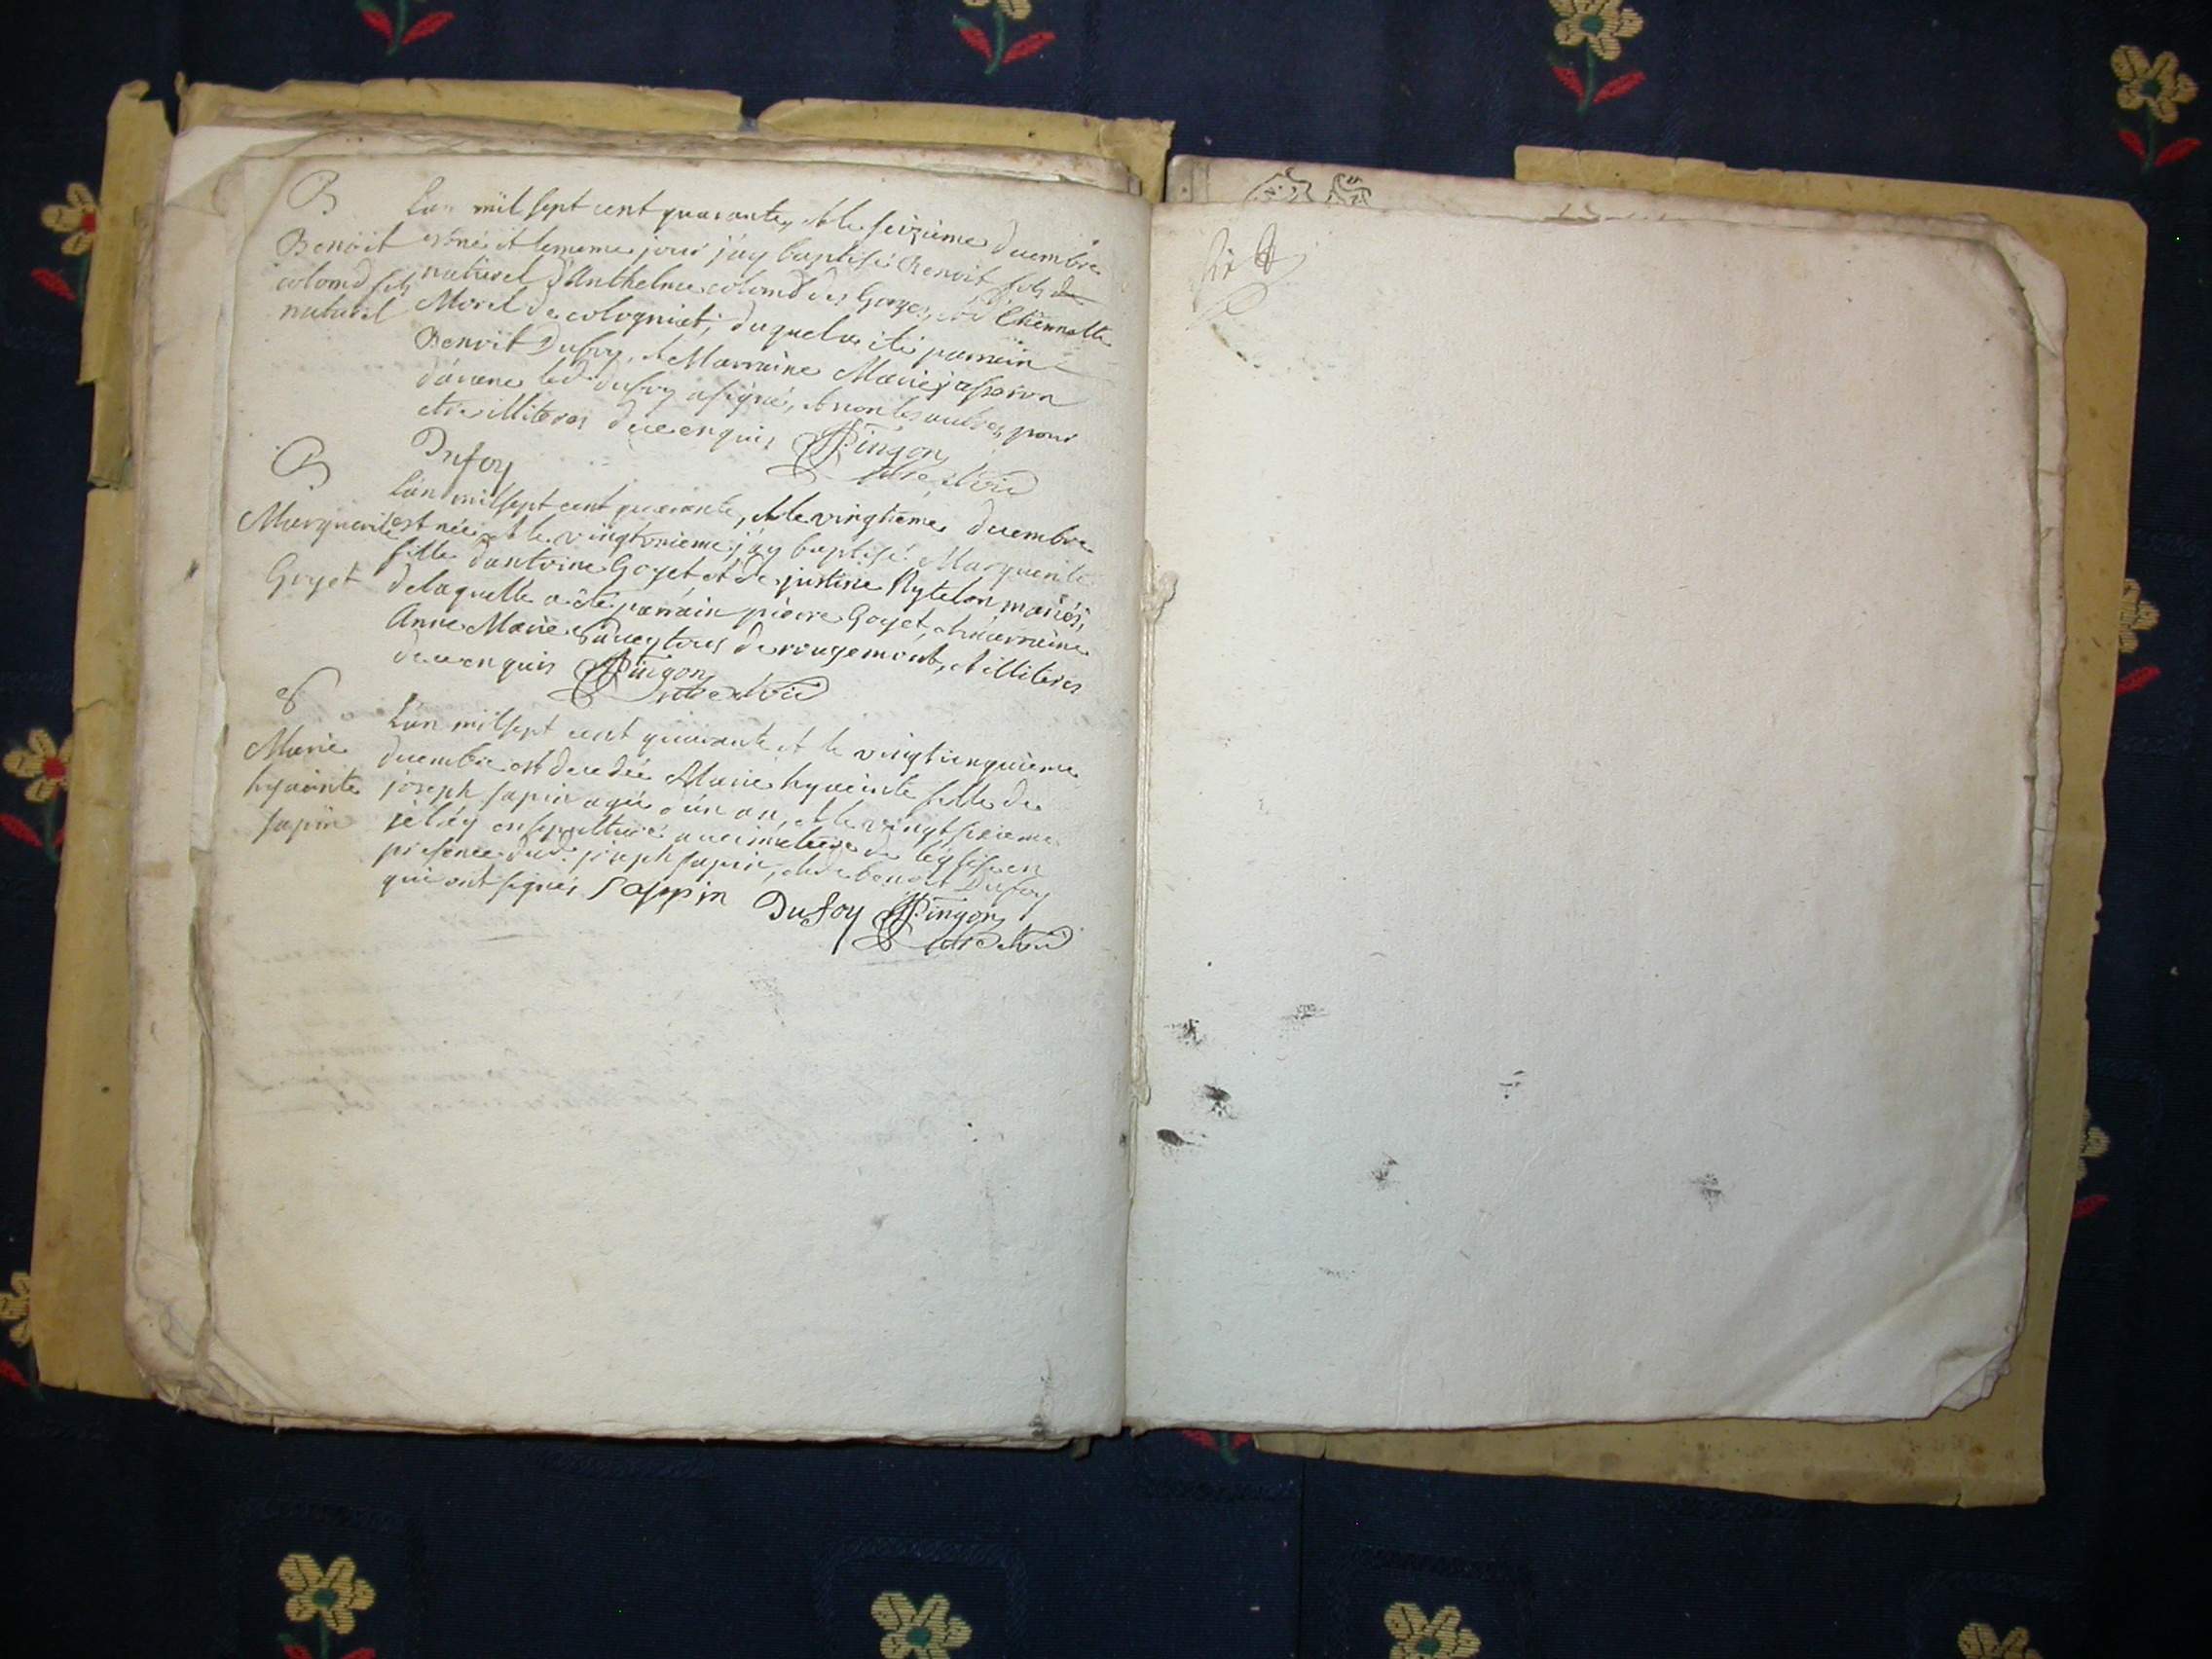 B
L'an mil sept cent quarante, et le seizieme decembre
Benoit
est né et le meme jour j'ay baptisé Benoit fils de
colomd fils
naturel d'Anthelme colomd des Gorges, et d'Etiennette
naturel
Morel de colognieti, duquel a été parrain
Benoit Dufoy, et Marraine Marie
led Dufoy a signé, et non les autres pour
etre illiteres de ce enquis Pingon
Dufoy
B
L'an mil sept cent quarante, et le vingtieme decembre
Marguerite
est née et le vingtunieme j'ay baptisé Marguerite
fille d'antoine Goyet, et de justine Rytelon mariés,
Goyet
delaquelle a été parrain pierre Goyet, et marraine
Anne Marie tous de rougemont, et illiteres
de ce enquis Pingon
S
L'an mil sept cent quarante et le vingt cinquieme
Marie
decembre est decedée Marie hyacinte fille de
hyacinte
joseph sapin agée d'un an, et le vingt sixieme
sapin
je l'ey ensepulturé au cimetiere de l'église en
presence dud. joseph sapin, et de benoit Dufoy
qui ont signés Sappin Dufoy Pingon